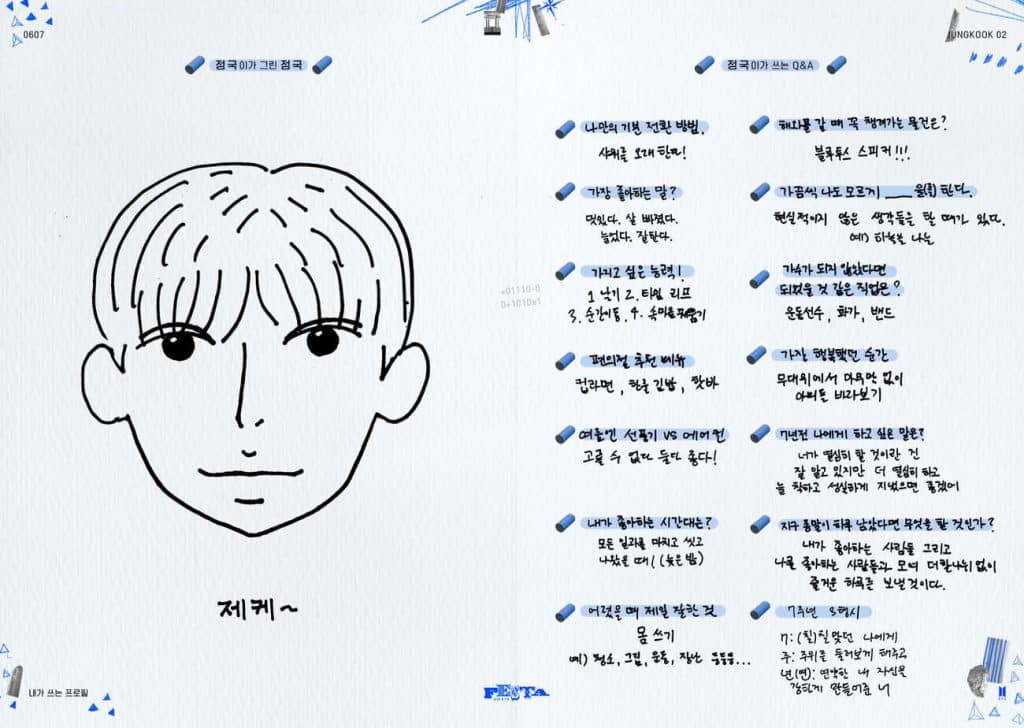 0607
JUNGKOOK 02
정국이가 그린 정국
제케~
내가 쓰는 프로필
정국이가 쓰는 Q&A
나만의 기분 전환 방법.
샤워를 오래 한다!
가장 좋아하는 말?
멋있다. 살 빠졌다.
늘었다. 잘한다.
가지고 싶은 능력!
1 날기 2. 타임 리프
3. 순간이동. 4. 속마음
편의점 추천 메뉴
컵라면, 한줄 김밥, 핫바
여름엔 선풍기 vs 에어컨
고를 수 없다 둘다 좋다!
내가 좋아하는 시간대는?
모든 일과를 마치고 씻고
나왔을 때! (늦은 밤)
어렸을 때 제일 잘한 것
몸 쓰기
예) 청소, 그림, 운동, 장난 등등등...
해외를 갈 때 꼭 챙겨가는 물건은?
블루투스 스피커!!!
가끔씩 나도 모르게 ___ 을(를) 한다.
현실적이지 않은 생각들을 할 때가 있다.
예) 하늘을 나는
가수가 되지 않았다면
되었을 것 같은 직업은?
운동선수, 화가, 밴드
가장 행복했던 순간
무대위에서 마지막 없이
아미들 바라보기
7년전 나에게 하고 싶은 말은?
너가 열심히 할 것이란 건
잘 알고 있지만 더 열심히 하고
늘 착하고 성실하게 지냈으면 좋겠어
지구 종말이 하루 남았다면 무엇을 할 것인가?
내가 좋아하는 사람들 그리고
나를 좋아하는 사람들과 모여 더할나위 없이
즐거운 하루를 보낼 것이다.
7주년 3행시
7: (칠)칠맞던 나에게
주: 주위를 둘러보게 해주고
년(연): 연약한 내 자신을
강하게 만들어준 너
FESTA